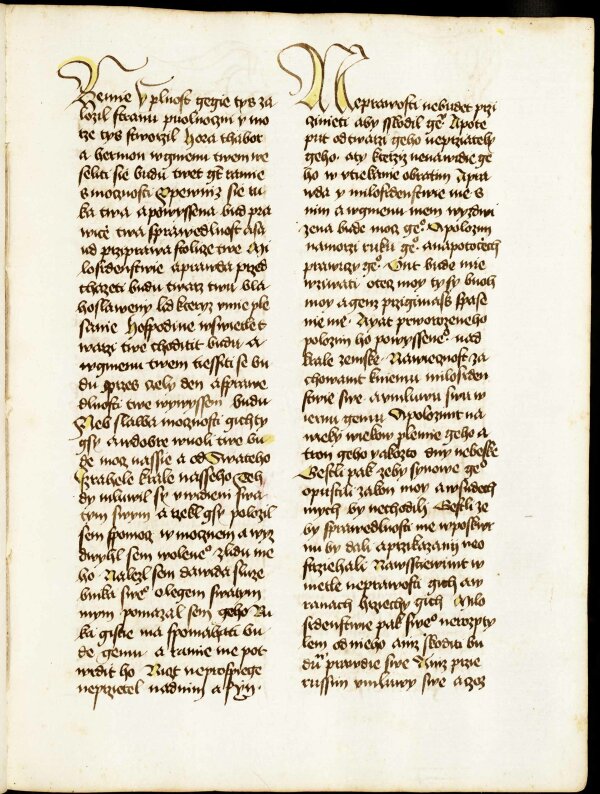 Zemie y plnost gegie tys za
lozil stranu puolnoczni y mo
rze tys stworzil Hora thabor
a hermon wgmenu twem we
seliti sie budu twe gt ramie
s mocznosti Opewniz sie ru
ka twa a powyssena bud pra
wicze twa sprawedlnost a sa
ud przziprawa stolicze twe Mi
losrdenstwie a prawda przed
chazeti budu twarz twu Bla
hoslaweny lid kteryz vmie ple
sanie Hospodine wswietle t
warzi twe choditit budu A
wgmenu twem tiessiti se bu
du przes czely den a sprawe
dlnosti twe wywyssem budu
Neb slawa moznosti gichty
gsy a w dobre wuoli twe bu
de moz nassie a od Swateho
Izrahele krale nasseho Teh
dy mluwil sy w widieni swa
tym swym a rzekl gsy polozil
sem spomoz w moznem a wyz
dwyhl sem wolene⁰ zlidu me
ho Nalezl sem dawida sluze
bnika swe⁰ olegem swatym
mym pomazal sem geho Ru
ka gistie ma spomahati bu
de gemu a ramie me pot
wrdit ho Nicz neprospiege
neprzietel nadnim a syn
Neprawosti nebudet przi
cziniti aby sskodil ge⁰ Apote
put od twarzi geho neprziately
geho aty kterziz nenawidie ge
ho w vtiekanie obratim Apra
wda y milosrdenstwie me s
nim a wgmenu mem wyzdwi
zena bude moz ge⁰ Apolozim
namorzi ruku ge⁰ a napotoczech
prawiczy ge⁰ Ont bude mie
wziwati otecz moy ty sy buoh
moy a gem przigimass spase
nie me Ayat prworozeneho
polozim ho powyssene⁰ nad
krale zemske Nawiecznost za
chowant kniemu milosrden
stwie swe a vmluwu swu w
iernu gemu Apolozimt na
wieky wiekow plemie geho a
tron geho yakozto dny nebeske
Gestli pak zeby synowe ge⁰
opustili zakon moy a wsudech
mych by nechodili Gestli ze
by sprawedlnosti me wposkwr
nu by dali a przikazanij me⁰
strziehali Nawsstiewimt w
metle neprawosti gich a w
ranach hrzechy gich Milo
srdenstwie pak swe⁰ nerozpty
lem od nieho aniz skoditi bu
du prawdie swe Aniz przie
russim vmluwy swe a czoz